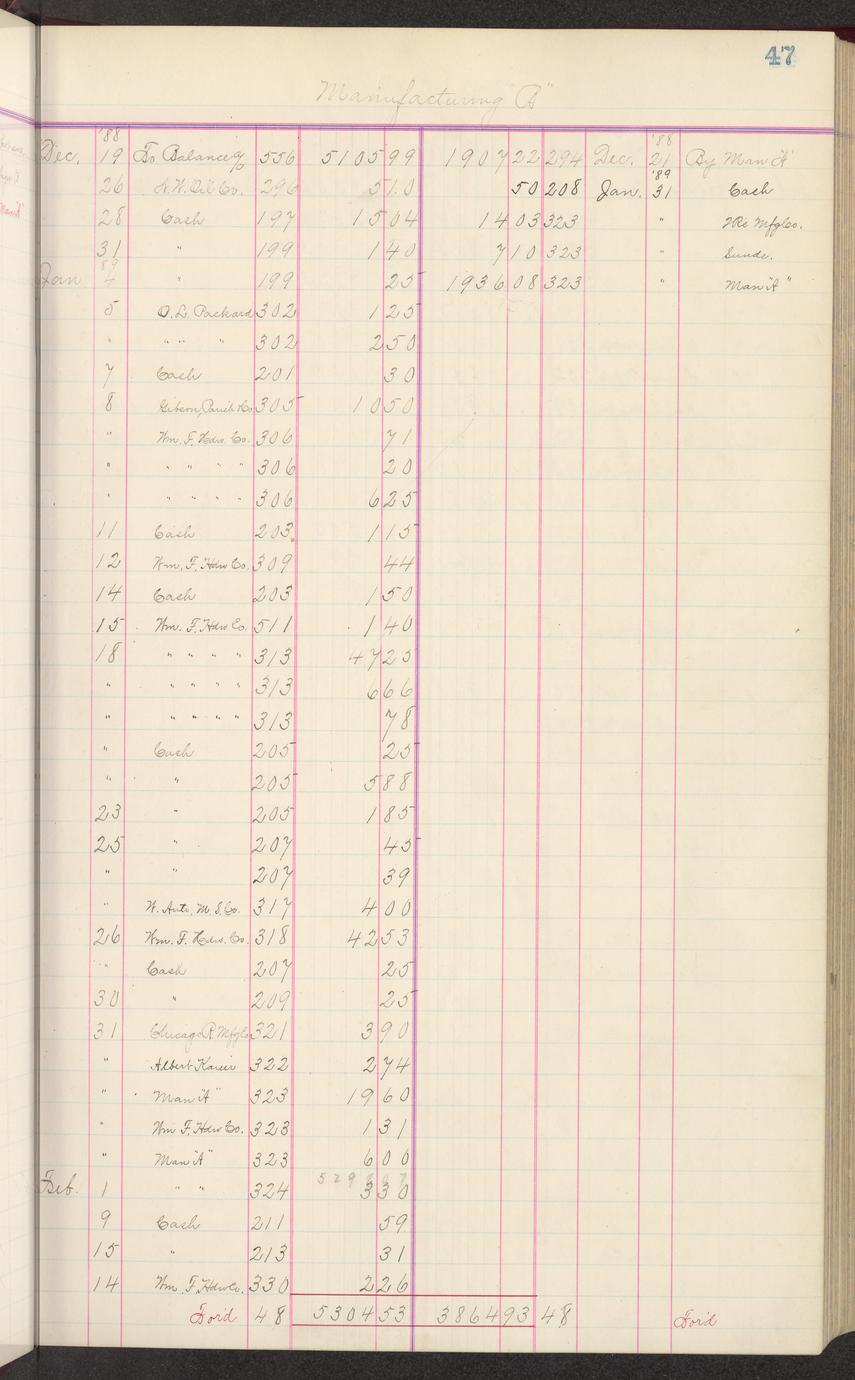 47
Manufacturing "B"
'88 '88
Dec. 19 To Balance 556 5105 99 1907 22 294 Dec. 21 By Man "A"
'89
26 N.W. Oil Co. 296 5 10 50 208 Jan. 31 Cash
28 Cash 197 15 04 14 03 323 " Mfg Co.
31 " 199 1 40 7 10 323 " Sunds.
'89
Jan 4 " 199 25 1936 08 323 " Man "A"
5 O.L. Packard 302 1 25
" " " " 302 2 50
7 Cash 201 30
8 Gibson, Parish & Co 305 10 50
" Wm. F. Hdw. Co. 306 71
" " " " " 306 20
" " " " " 306 6 25
11 Cash 203 1 15
12 Wm. F. Hdw Co. 309 44
14 Cash 203 1 50
15 Wm. F. Hdw Co. 511 1 40
18 " " " " 313 47 25
" " " " " 313 6 66
" " " " " 313 78
" Cash 205 25
" " 205 5 88
23 " 205 1 85
25 " 207 45
" " 207 39
" W. Auto. M. S. Co. 317 4 00
26 Wm. F. Hdw. Co. 318 42 53
" Cash 207 25
30 " 209 25
31 Chicago R. Mfg Co 321 3 90
" Albert 322 2 74
" Man "A" 323 19 60
" Wm F. Hdw Co. 323 1 31
" Man "A" 323 6 00
Feb. 1 " " 324 3 30
9 Cash 211 59
15 " 213 31
14 Wm. F. Hdw Co. 330 2 26
For'd 48 5304 53 3864 93 48 For'd